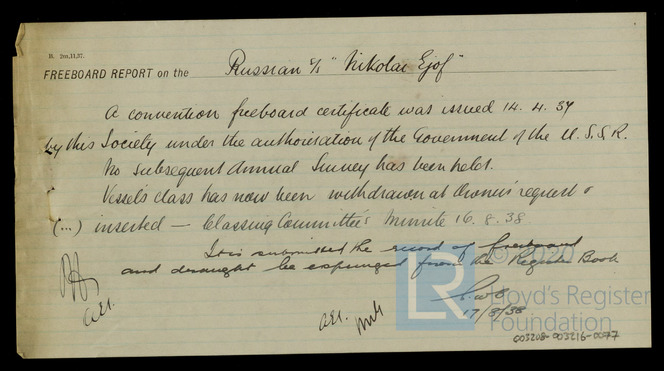 B. 2m,11,37.
FREEBOARD REPORT on the Russian S/S "Nikolai Ejof"
A convention freeboard certificate was issued 14.4.37
by this Society under the authorisation of the Government of the U.S.S.R.
No subsequent Annual Survey has been held.
Vessel's class has now been withdrawn at Owners' request &
(...) inserted — Classing Committee's Minute 16.8.38.
It is submitted the record of freeboard
and draught be expunged from the Register Book
17/8/38
© 2020
LR Lloyd's Register
Foundation
G03208-003216-0077